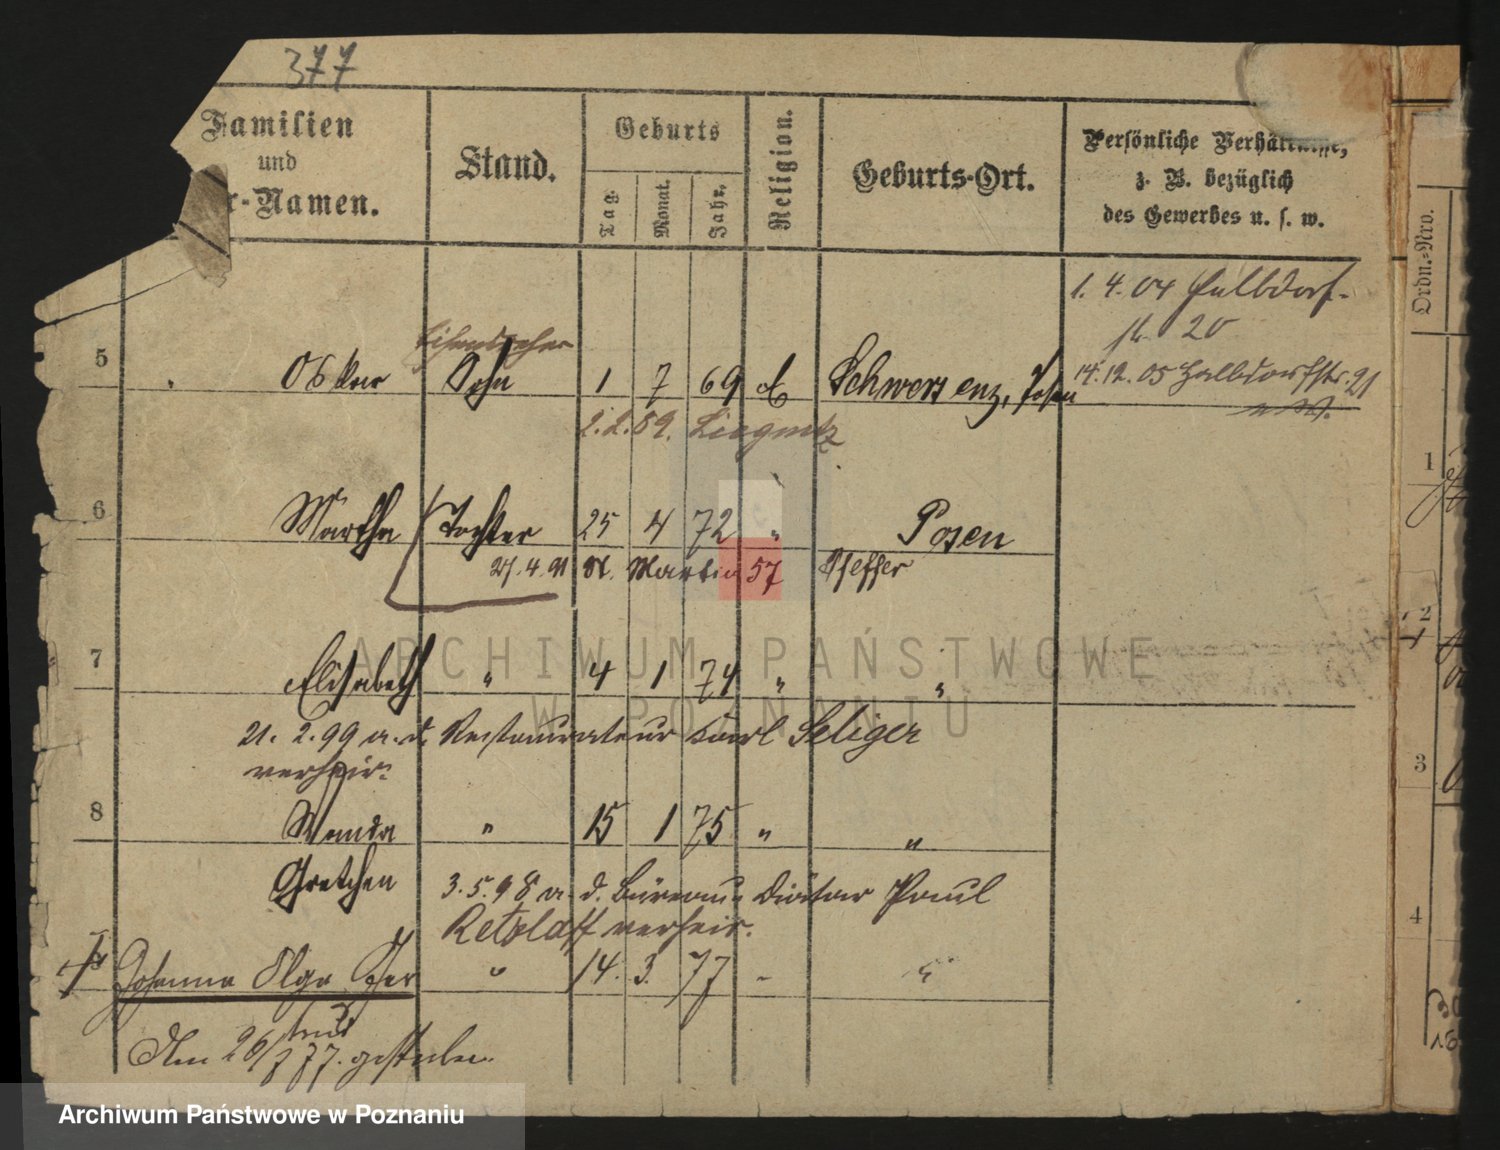 377
Familien
und
r-Namen.
Stand.
Geburts
Tag.
Monat.
Jahr.
Religion.
Geburts-Ort.
Persönliche Verhältnisse,
z. B. bezüglich
des Gewerbes u. s. w.
Ordn.-Nro.
1. 4. 04 Halbdorf-
str. 20
5 Oskar Sohn 1 7 69 Schwersenz, Posen
14. 12. 05 Halbdorfstr. 21
2. 2. 89. Liegnitz
6 Martha Tochter 25 4 72 " Posen
27. 4. 91 St. Martin 57 Pfeffer
7 Elisabeth " 4 1 74 " "
21. 2. 99 a. d. Restaurateur Karl Seliger
verheir.
8 Wanda " 15 1 75 " "
Gretchen 3. 5. 98 a. d. Büreau Diätar Paul
Retzlaff verheir.
Johanna Olga " 14. 3. 77 " "
Am 26/7 77. gestorben.
1
2
3
4
ARCHIWUM PAŃSTWOWE
W POZNANIU
Archiwum Państwowe w Poznaniu